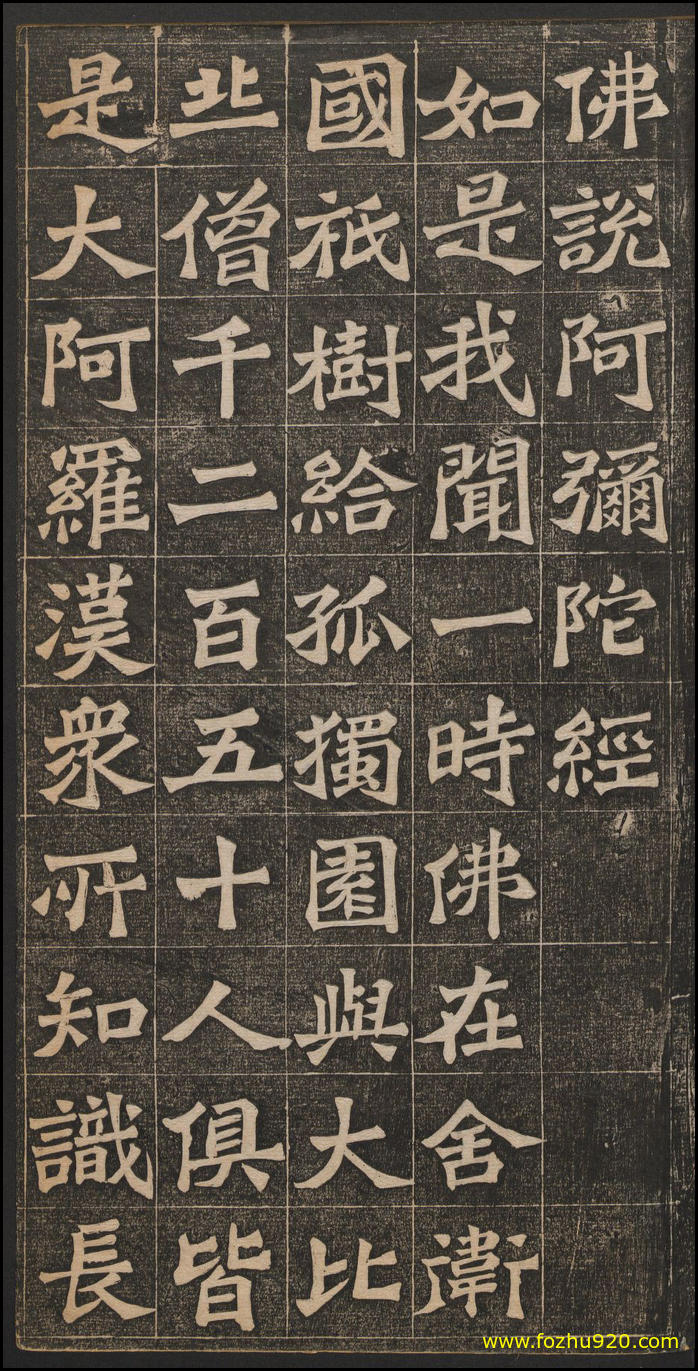 佛說阿彌陀經
如是我聞一時佛在舍衛
國祇樹給孤獨園與大比
丘僧千二百五十人俱皆
是大阿羅漢衆所知識長
www.fozhu920.com